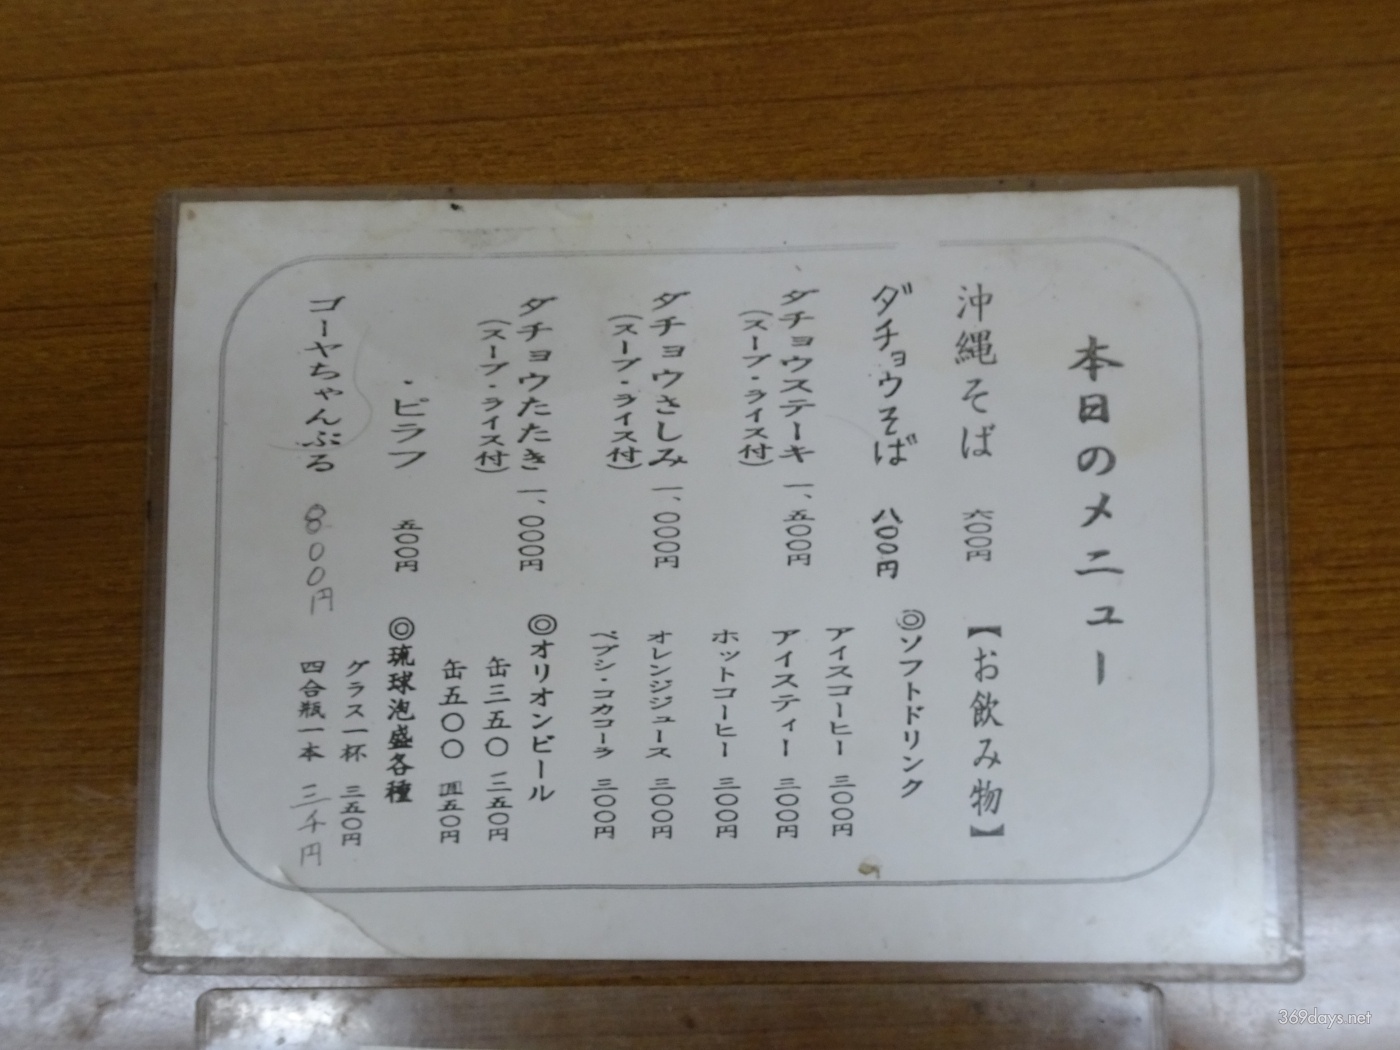 本日のメニュー
沖縄そば 六〇〇円
ダチョウそば 八〇〇円
ダチョウステーキ 一、五〇〇円
(スープ・ライス付)
ダチョウさしみ 一、〇〇〇円
(スープ・ライス付)
ダチョウたたき 一、〇〇〇円
(スープ・ライス付)
・ピラフ 五〇〇円
ゴーヤちゃんぷる 800円
【お飲み物】
◎ソフトドリンク
アイスコーヒー 三〇〇円
アイスティー 三〇〇円
ホットコーヒー 三〇〇円
オレンジジュース 三〇〇円
ペプシ・コカコーラ 三〇〇円
◎オリオンビール
缶三五〇 三五〇円
缶五〇〇 四五〇円
◎琉球泡盛各種
グラス一杯 三五〇円
四合瓶一本 三千円
369days.net